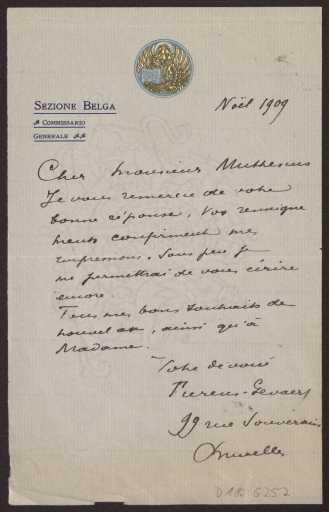 Noël 1909
SEZIONE BELGA
COMMISSARIO
GENERALE
Cher Monsieur Muthesius
Je vous remercie de votre
bonne réponse. Vos renseigne
ments confirment mes
impressions. Sous peu je
me permettrai de vous écrire
encore
Tous mes bons souhaits de
nouvel an, ainsi qu'à
Madame.
Votre dévoué
Fierens-Gevaert
99 rue Souveraine
Bruxelles